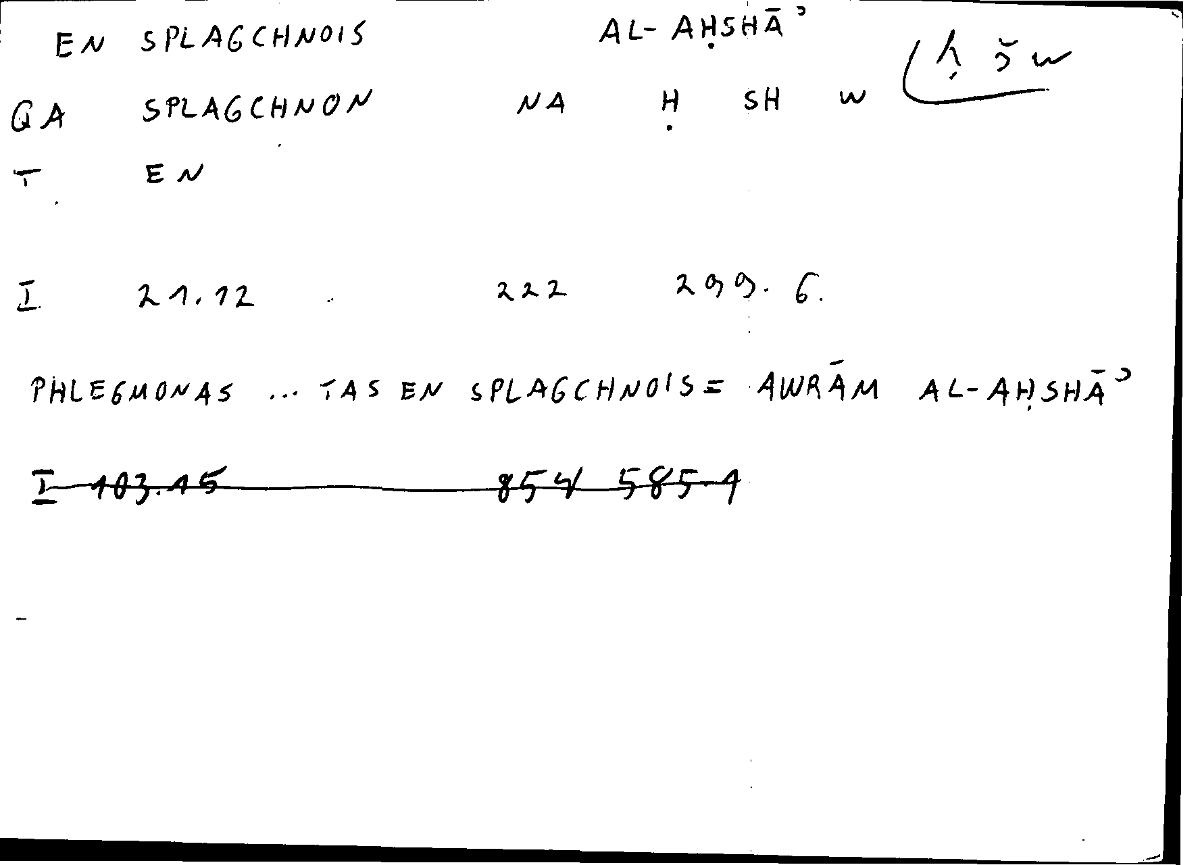 EN SPLAGCHNOIS AL-AḤSHĀʾ
ḥ šw
QA SPLAGCHNON NA Ḥ SH W
T EN
I 21.12 222 299.6.
PHLEGMONAS ... TAS EN SPLAGCHNOIS = AWRĀM AL-AḤSHĀʾ
I 103.15 854 585.1